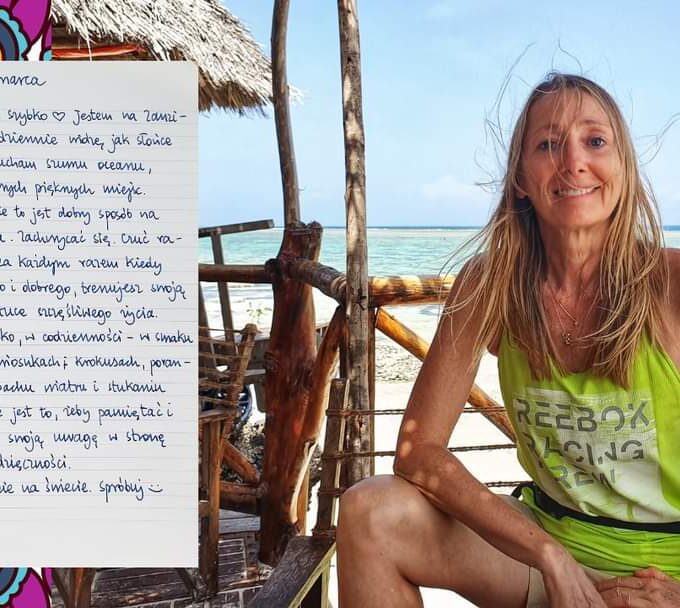 marca
szybko ♡ Jestem na Zanzi-
dziennie widzę, jak słońce
ucham szumu oceanu,
nych pięknych miejsc.
ie to jest dobry sposób na
a. Zachwycać się. Czuć ra-
za każdym razem kiedy
o i dobrego, trenujesz swoją
tuce szczęśliwego życia.
ko, w codzienności - w smaku
niosukach i krokusach, poran-
pachu wiatru i stukaniu
e jest to, żeby pamiętać i
swoją uwagę w stronę
dzięczności.
nie na świecie. Spróbuj
REEBOK
RACING
CREW